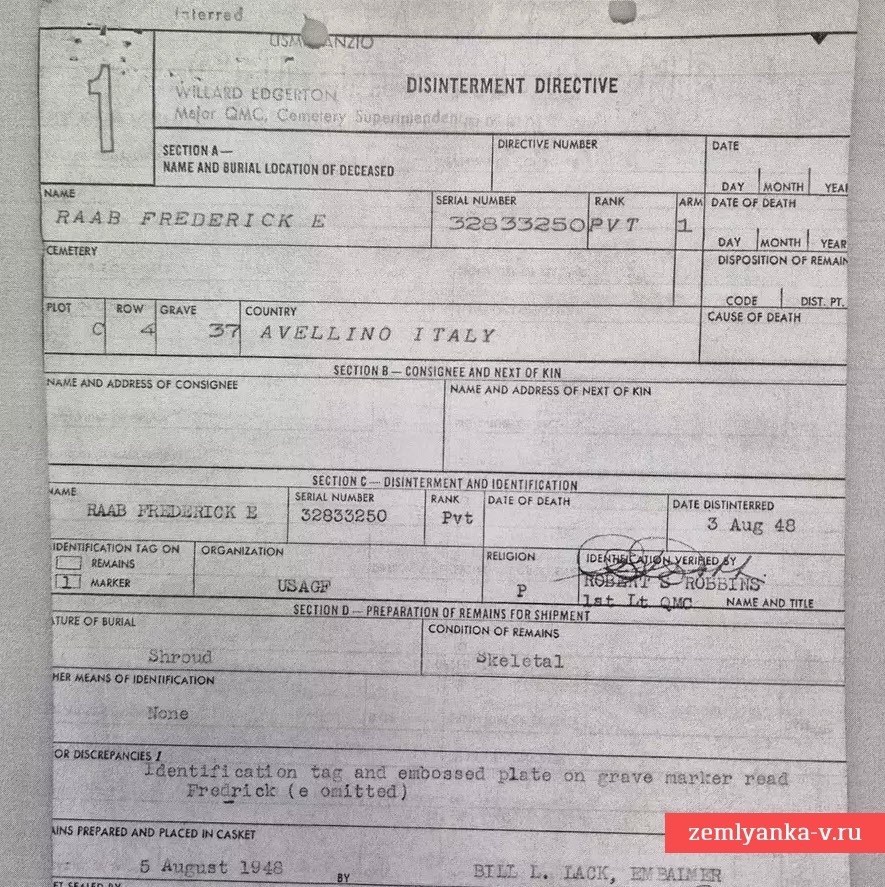 Interred
USM ANZIO
1
WILLARD EDGERTON
Major QMC, Cemetery Superintendent
DISINTERMENT DIRECTIVE
SECTION A—
NAME AND BURIAL LOCATION OF DECEASED
DIRECTIVE NUMBER
DATE
DAY MONTH YEAR
NAME
RAAB FREDERICK E
SERIAL NUMBER
32833250
RANK
PVT
ARM
1
DATE OF DEATH
DAY MONTH YEAR
CEMETERY
DISPOSITION OF REMAIN
CODE DIST. PT.
PLOT
C
ROW
4
GRAVE
37
COUNTRY
AVELLINO ITALY
CAUSE OF DEATH
SECTION B — CONSIGNEE AND NEXT OF KIN
NAME AND ADDRESS OF CONSIGNEE
NAME AND ADDRESS OF NEXT OF KIN
SECTION C — DISINTERMENT AND IDENTIFICATION
NAME
RAAB FREDERICK E
SERIAL NUMBER
32833250
RANK
Pvt
DATE OF DEATH
DATE DISTINTERRED
3 Aug 48
IDENTIFICATION TAG ON
REMAINS
1 MARKER
ORGANIZATION
USAGF
RELIGION
P
IDENTIFICATION VERIFIED BY
ROBERT S ROBBINS
1st Lt QMC NAME AND TITLE
SECTION D — PREPARATION OF REMAINS FOR SHIPMENT
ATURE OF BURIAL
Shroud
CONDITION OF REMAINS
Skeletal
HER MEANS OF IDENTIFICATION
None
OR DISCREPANCIES 1
Identification tag and embossed plate on grave marker read
Fredrick (e omitted)
AINS PREPARED AND PLACED IN CASKET
5 August 1948 BY BILL L. LACK, EMBALMER
ET SEALED BY
zemlyanka-v.ru